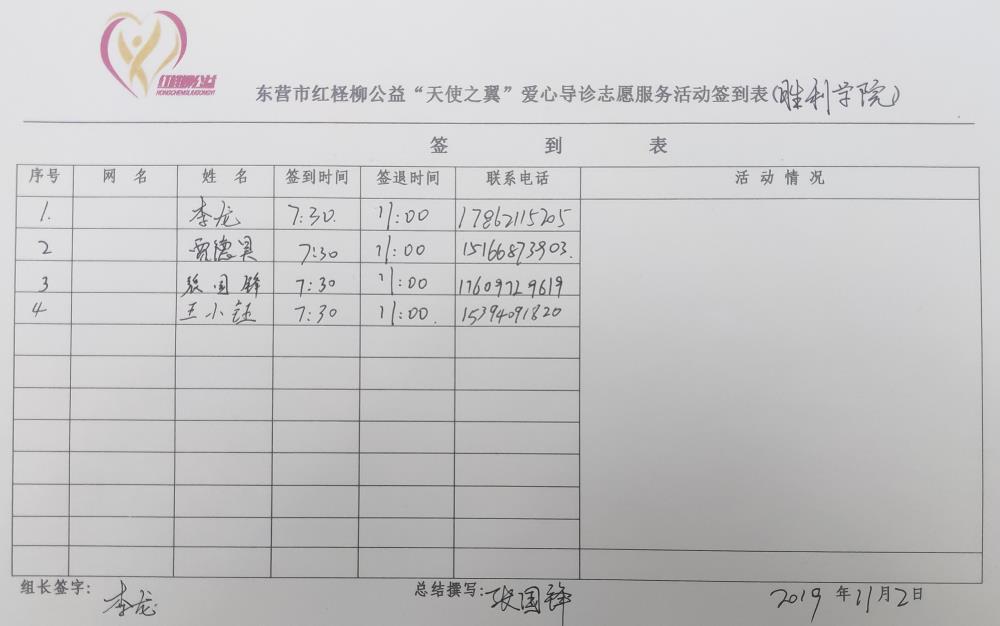 红柽柳公益
HONGCHENGLIUGONGYI
东营市红柽柳公益“天使之翼”爱心导诊志愿服务活动签到表(胜利学院)
签 到 表
序号 网 名 姓 名 签到时间 签退时间 联系电话 活 动 情 况
1. 李龙 7:30. 11:00 17862115205
2 贾德昊 7:30 11:00 15166873903.
3 张国锋 7:30 11:00 17609729619
4 王小钰 7:30 11:00. 15394091820
组长签字: 李龙 总结撰写: 张国锋 2019 年 11 月 2 日